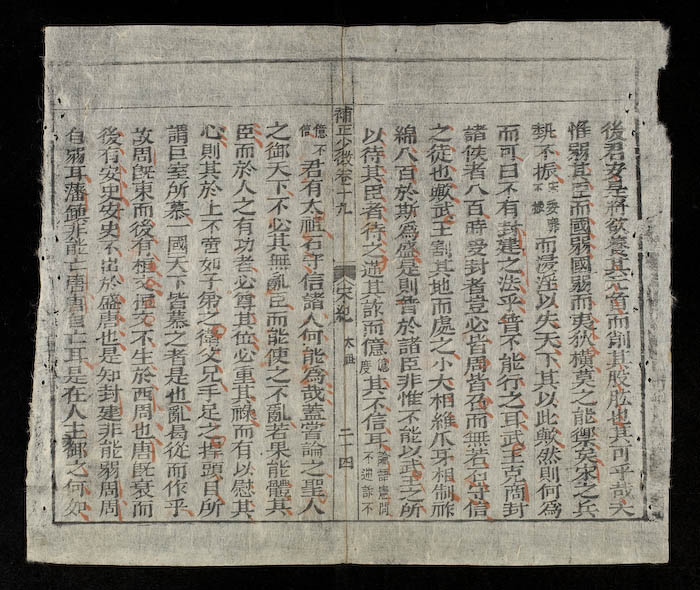 後君安是將欲養其元首而削其股肱也其可乎哉夫
惟弱其臣而國弱國弱而夷狄橫莫之能禦矣宋之兵
埶不振宋委靡不振而浸淫以失天下其以此歟然則何為
而可曰不有封建之法乎普不能行之耳武王克商封
諸侯者八百時受封者豈必皆周皆召而無若石守信
之徒也歟武王割其地而處之小大相維爪牙相制祚
綿八百於斯為盛是則普於諸臣非惟不能以武王之所
以待其臣者待之逆其詐而億億度其不信耳論語憲問不逆詐不
補正少微卷十九 宋紀 太祖 二十四
億不信君有太祖石守信諸人何能為哉蓋嘗論之聖人
之御天下不必其無亂臣而能使之不亂若果能體其
臣而於人之有功者必尊其位必重其祿而有以慰其
心則其於上不啻如子弟之衛父兄手足之捍頭目所
謂巨室所慕一國天下皆慕之者是也亂曷從而作乎
故周旣東而後有桓文桓文不生於西周也唐旣衰而
後有安史安史不出於盛唐也是知封建非能弱周周
自弱耳藩鎭非能亡唐唐自亡耳是在人主御之何如